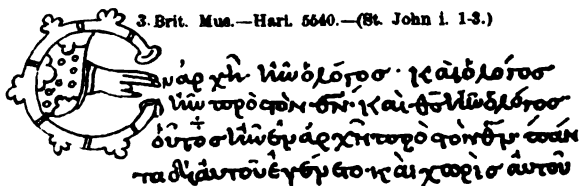 3. Brit. Mus.—Harl. 5540.—(St. John i. 1-3.)
Ἐν ἀρχῆ ἦν ὁ λόγος· καὶ ὁ λόγος
ἦν πρὸς τὸν θν· καὶ θς ἦν ὁ λόγος
οὗτος ἦν ἐν ἀρχῆ πρὸς τὸν θν πάν
τα δι αὐτοῦ ἐγένετο· καὶ χωρὶς αὐτοῦ